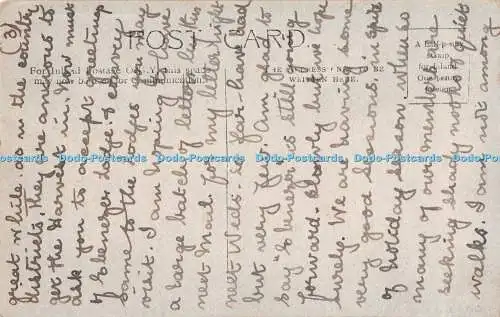 (3)
POST CARD
For Inland Postage ONLY, this space
may now be used for Communication.
THE ADDRESS ONLY TO BE
WRITTEN HERE.
Stamp
for Inland
One penny
Foreign
great while as in the country
districts, they are anxious to
get the Harvest in. Now must
ask you to accept greetings
of Ebenezer Lodge & convey
same to the Lodges you may
visit. I am hoping to have
a large budget letter this
next Mail for my letter night
next Weds - so far - have had
but very few. I am glad to
say "Ebenezer" is still going
forward - slowly but we hope
surely. We are having some
very good sessions in spite
of holiday season when so
many of our members are
seeking shady nooks & quiet
walks. I am not among
Dodo-Postcards - Website